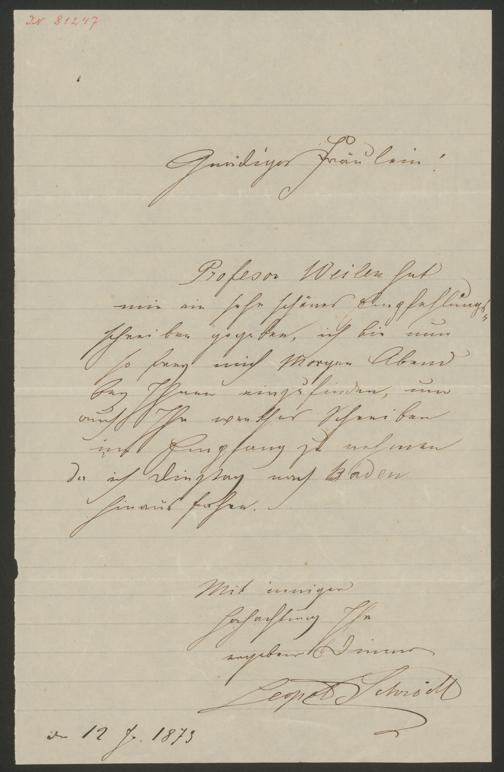 IN 81247
Gnädiges Fräulein!
Profesor Weilen hat
mir ein sehr schönes Empfehlungs-
schreiben gegeben, ich bin nun
so frey mich Morgen Abend
bey Ihnen einzufinden, um
auch Ihr werthes Schreiben
in Empfang zu nehmen
da ich Dinstag nach Baden
hinaus fahre.
Mit inniger
Hochachtung Ihr
ergebener Diener
Leopold Schrödl
12 1873